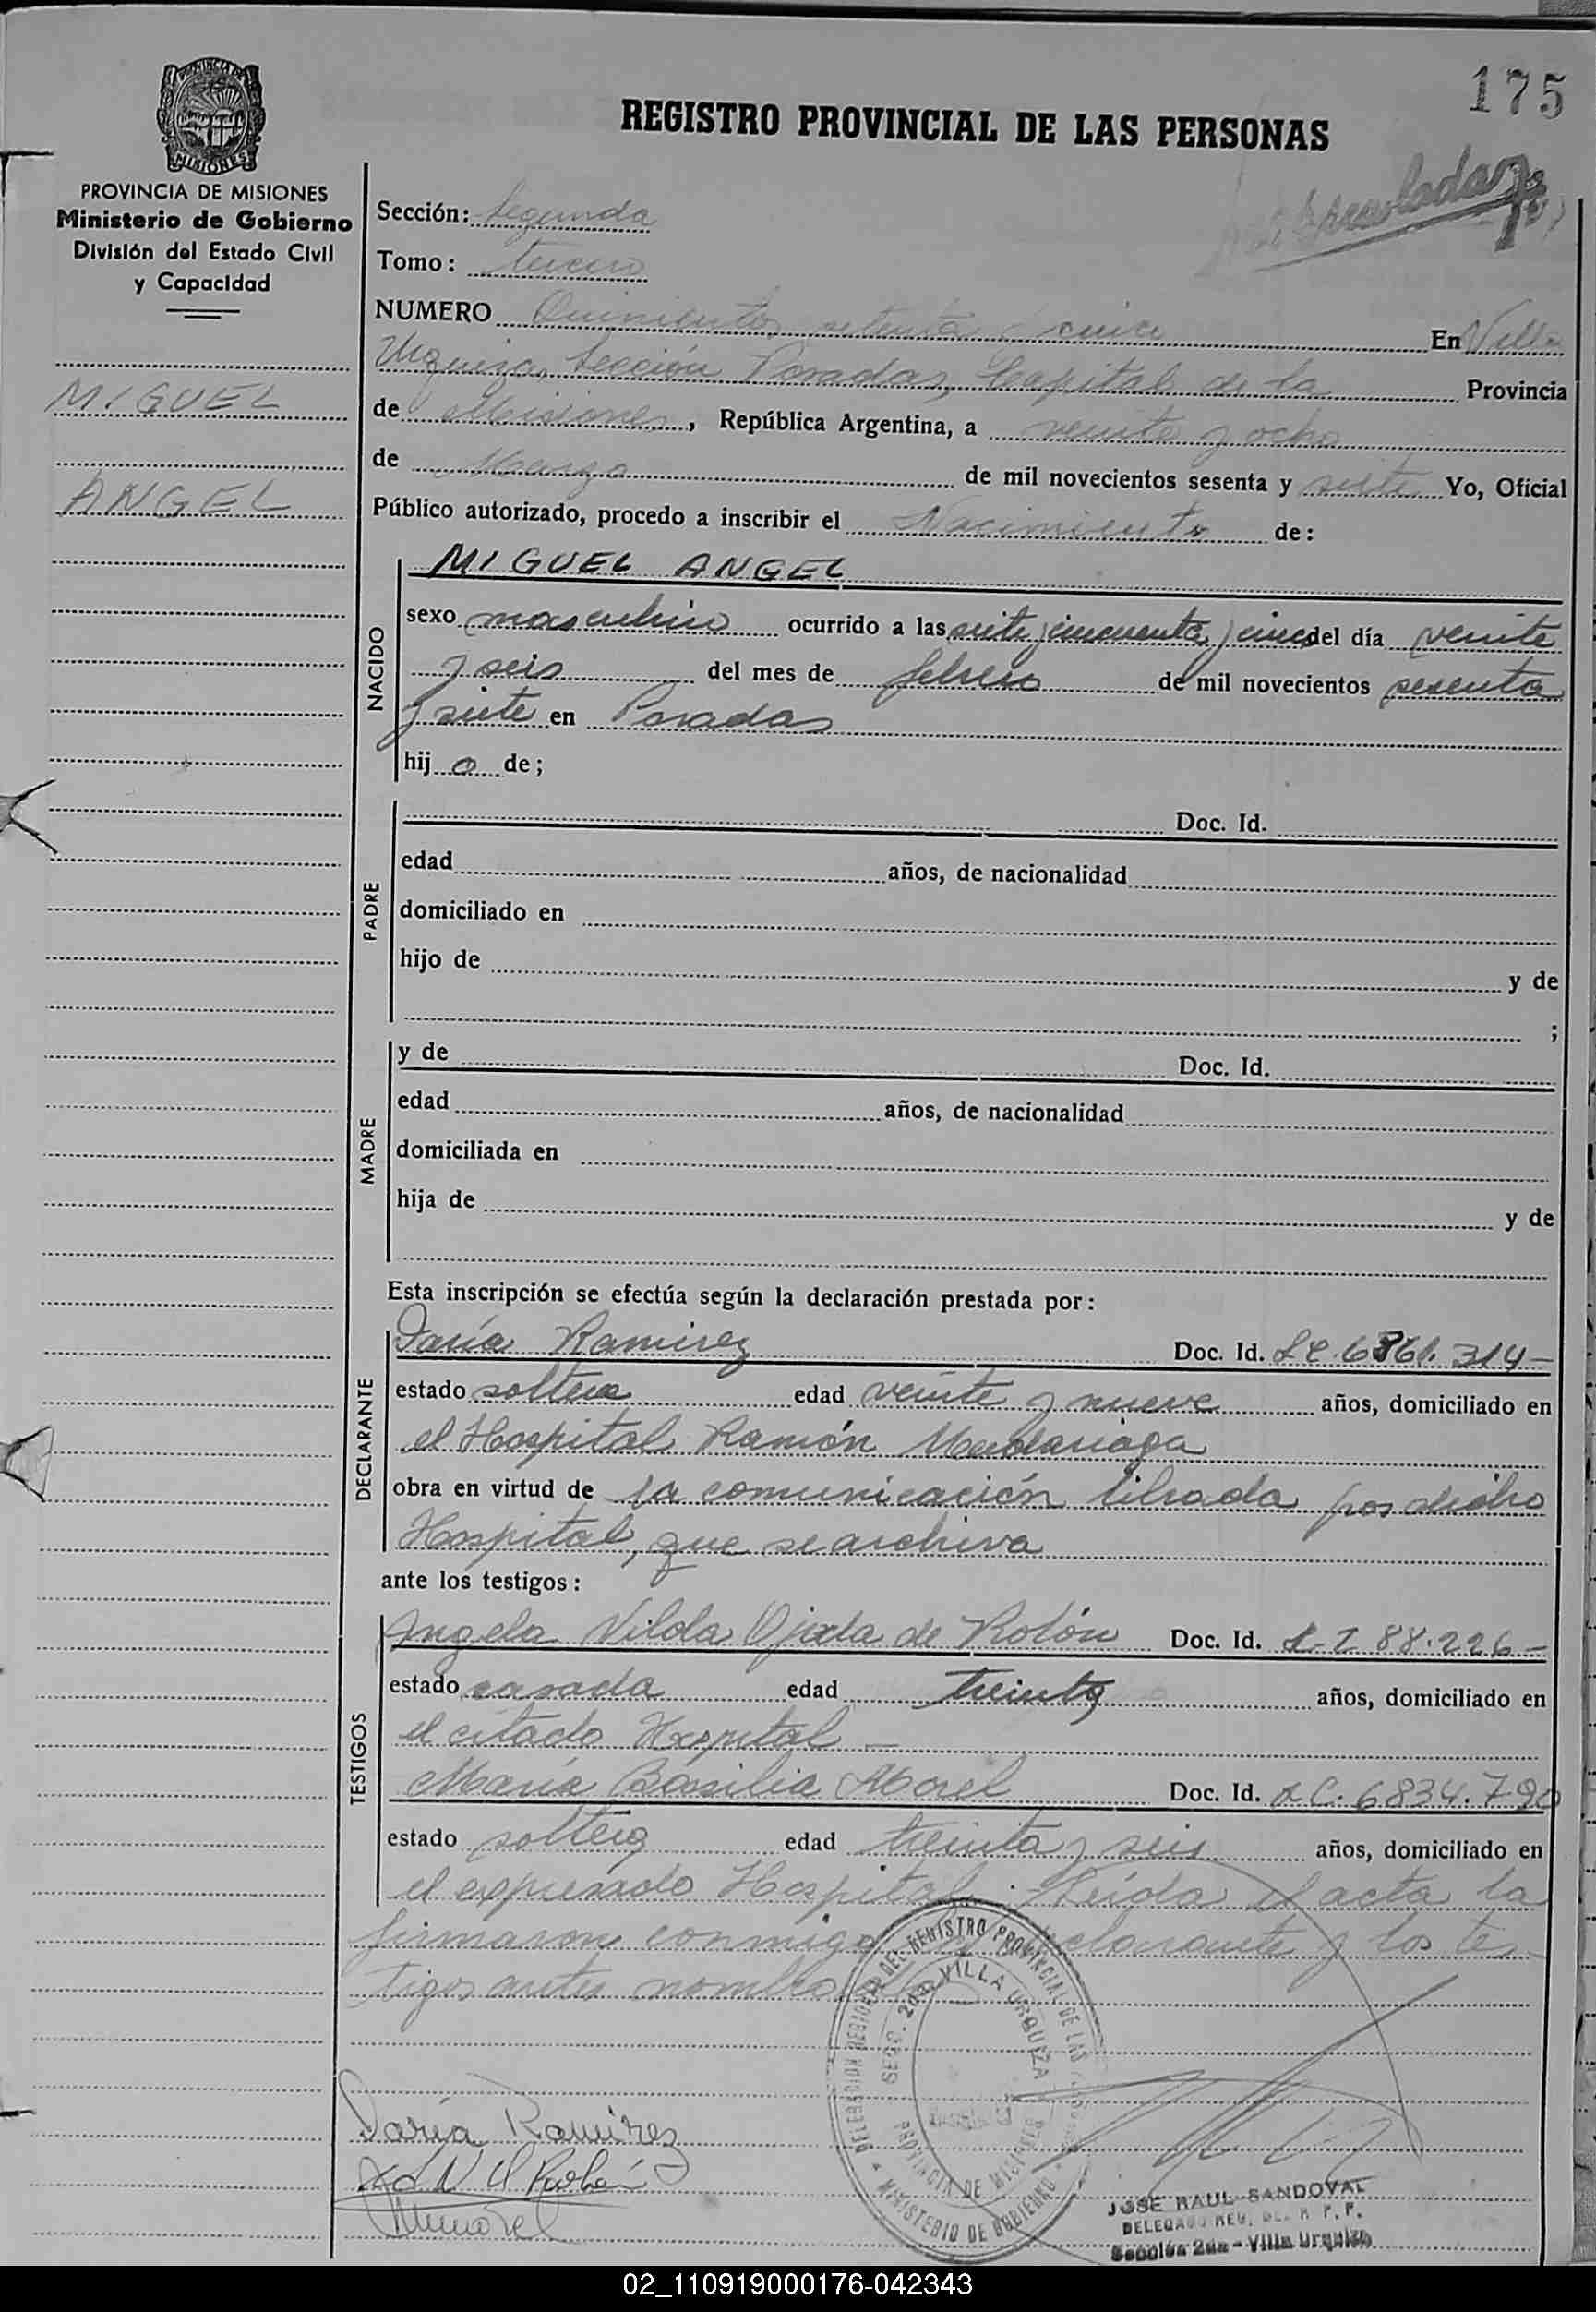 175
REGISTRO PROVINCIAL DE LAS PERSONAS
MISIONES
PROVINCIA DE MISIONES
Ministerio de Gobierno
División del Estado Civil
y Capacidad
MIGUEL
ANGEL
Sección: Segunda
Tomo: tercero
NUMERO Quinientos setenta y cinco En Villa
Urquiza, Sección Posadas, Capital de la Provincia
de Misiones, República Argentina, a veinte y ocho
de Marzo de mil novecientos sesenta y siete Yo, Oficial
Público autorizado, procedo a inscribir el Nacimiento de:
NACIDO
MIGUEL ANGEL
sexo masculino ocurrido a las siete y cincuenta y cinco del día veinte
y seis del mes de febrero de mil novecientos sesenta
y siete en Posadas
hijo de;
PADRE
Doc. Id.
edad años, de nacionalidad
domiciliado en
hijo de y de
;
MADRE
y de Doc. Id.
edad años, de nacionalidad
domiciliada en
hija de y de
Esta inscripción se efectúa según la declaración prestada por:
DECLARANTE
Daría Ramirez Doc. Id. LC. 6361.314-
estado soltera edad veinte y nueve años, domiciliado en
el Hospital Ramón Madariaga
obra en virtud de la comunicación librada por dicho
Hospital, que se archiva
ante los testigos:
TESTIGOS
Angela Nilda Ojeda de Rolón Doc. Id. 88.226-
estado casada edad treinta años, domiciliado en
el citado Hospital -
María Basilia Morel Doc. Id. LC. 6834.790
estado soltera edad treinta y seis años, domiciliado en
el expresado Hospital. Leída el acta la
firmaron conmigo declarante y los tes-
tigos antes nombrados
DELEGACION REGIONAL DEL REGISTRO PROVINCIAL DE LAS
SECC. 2da VILLA URQUIZA
PROVINCIA DE MISIONES
MINISTERIO DE GOBIERNO
Daría Ramirez
JOSE RAUL SANDOVAL
DELEGADO REG. DEL R. P. P.
Sección 2da - Villa Urquiza
02_110919000176-042343